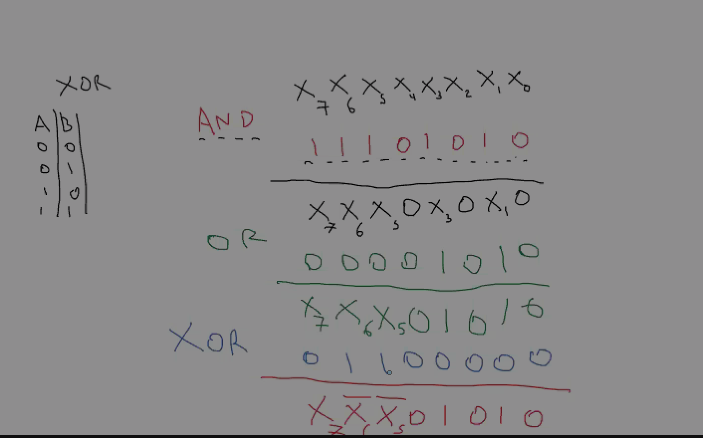 XOR
A B
0 0
0 1
1 0
1 1
X₇ X₆ X₅ X₄ X₃ X₂ X₁ X₀
AND 1 1 1 0 1 0 1 0
X₇ X₆ X₅ 0 X₃ 0 X₁ 0
OR 0 0 0 0 1 0 1 0
X₇ X₆ X₅ 0 1 0 1 0
XOR 0 1 1 0 0 0 0 0
X₇ X̅₆ X̅₅ 0 1 0 1 0